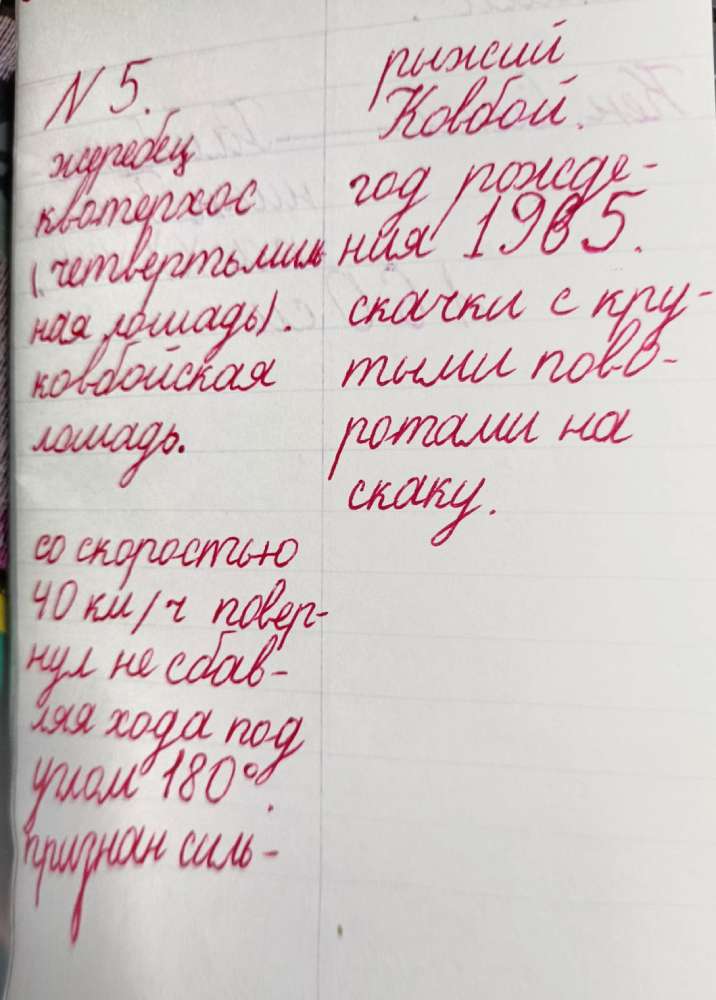 N 5.
жеребец
квотерхос
(четвертьмиль
ная лошадь).
ковбойская
лошадь.
со скоростью
40 км/ч повер-
нул не сбав-
ляя хода под
углом 180°.
признан силь-
рыжий
Ковбой.
год рожде-
ния 1965.
скачки с кру-
тыми пово-
ротами на
скаку.